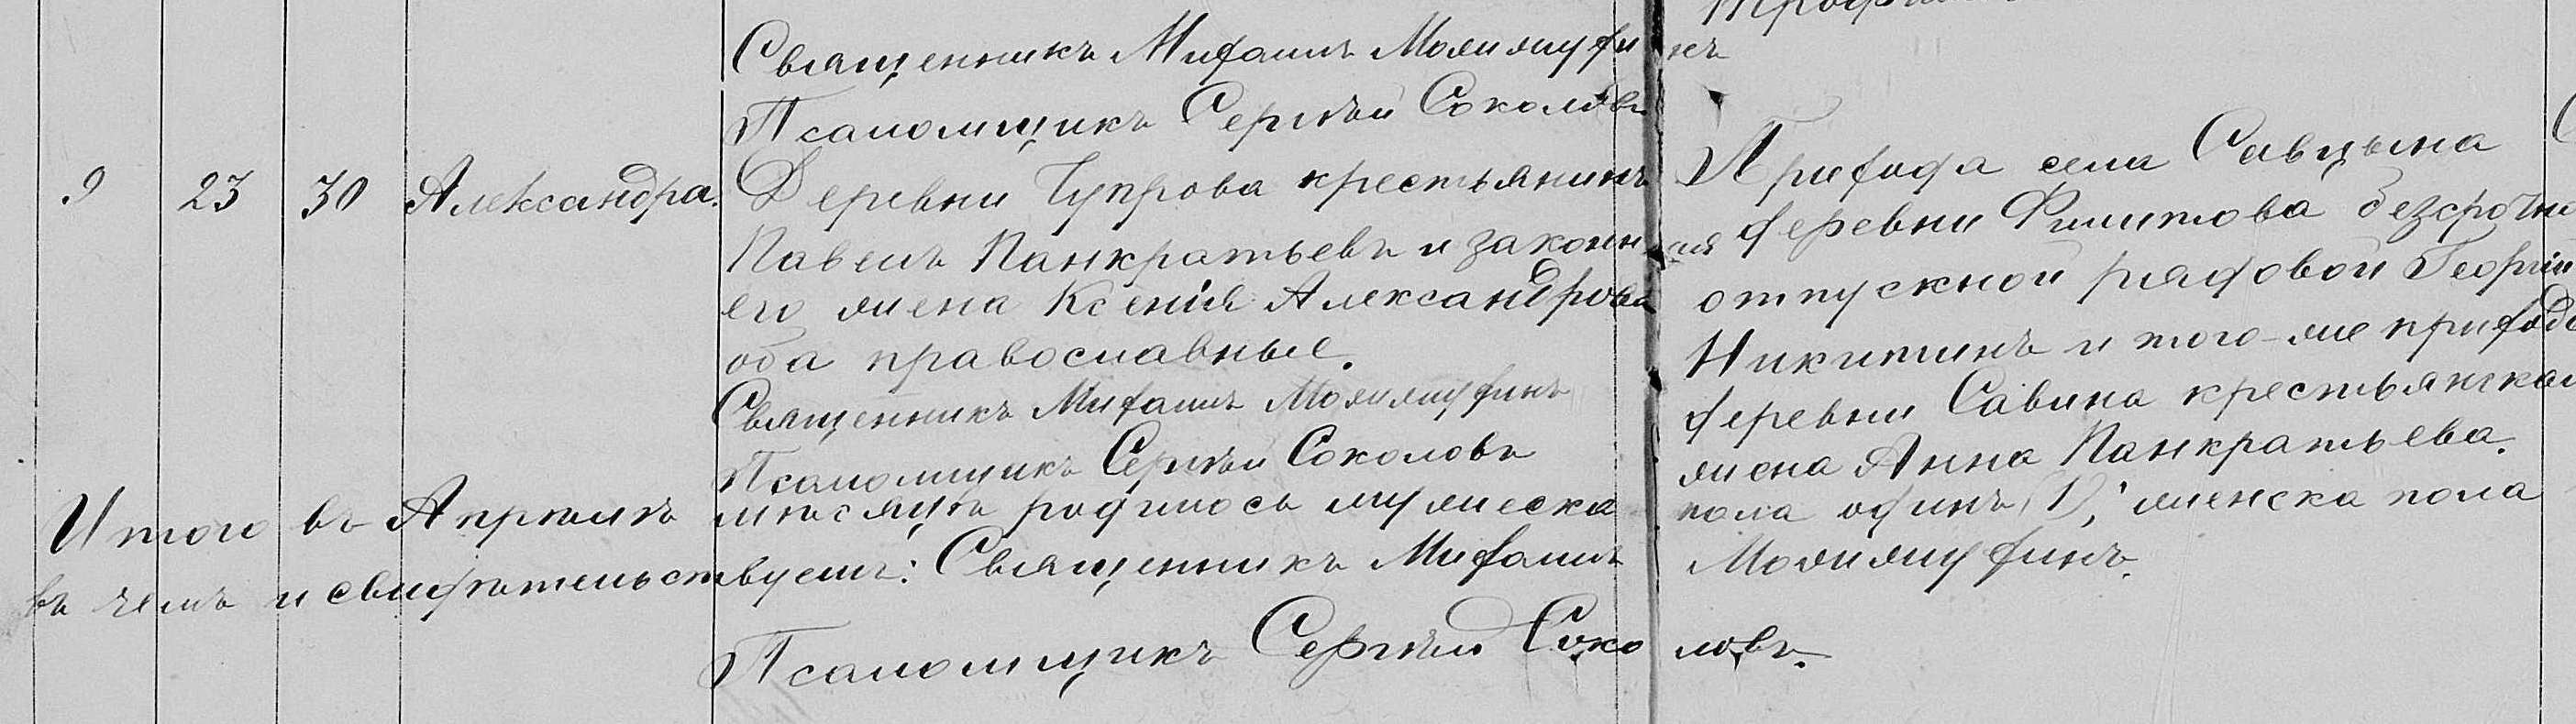 Священникъ Михаилъ Можжухинъ
Псаломщикъ Сергѣй Соколовъ
9 23 30 Александра.
Деревни Чупрова крестьянинъ
Павелъ Панкратьевъ и законная
его жена Ксенія Александрова
оба православные.
Священникъ Михаилъ Можжухинъ
Псаломщикъ Сергѣй Соколовъ
Прихода села Савцына
деревни Филитова безсрочно
отпускной рядовой Георгій
Никитинъ и того-же прихода
деревни Савина крестьянская
жена Анна Панкратьева.
Итого въ Апрѣлѣ мѣсяцѣ родилось мужеска пола одинъ (1), женска пола
въ чемъ и свидѣтельствуемъ: Священникъ Михаилъ Можжухинъ.
Псаломщикъ Сергѣй Соколовъ.